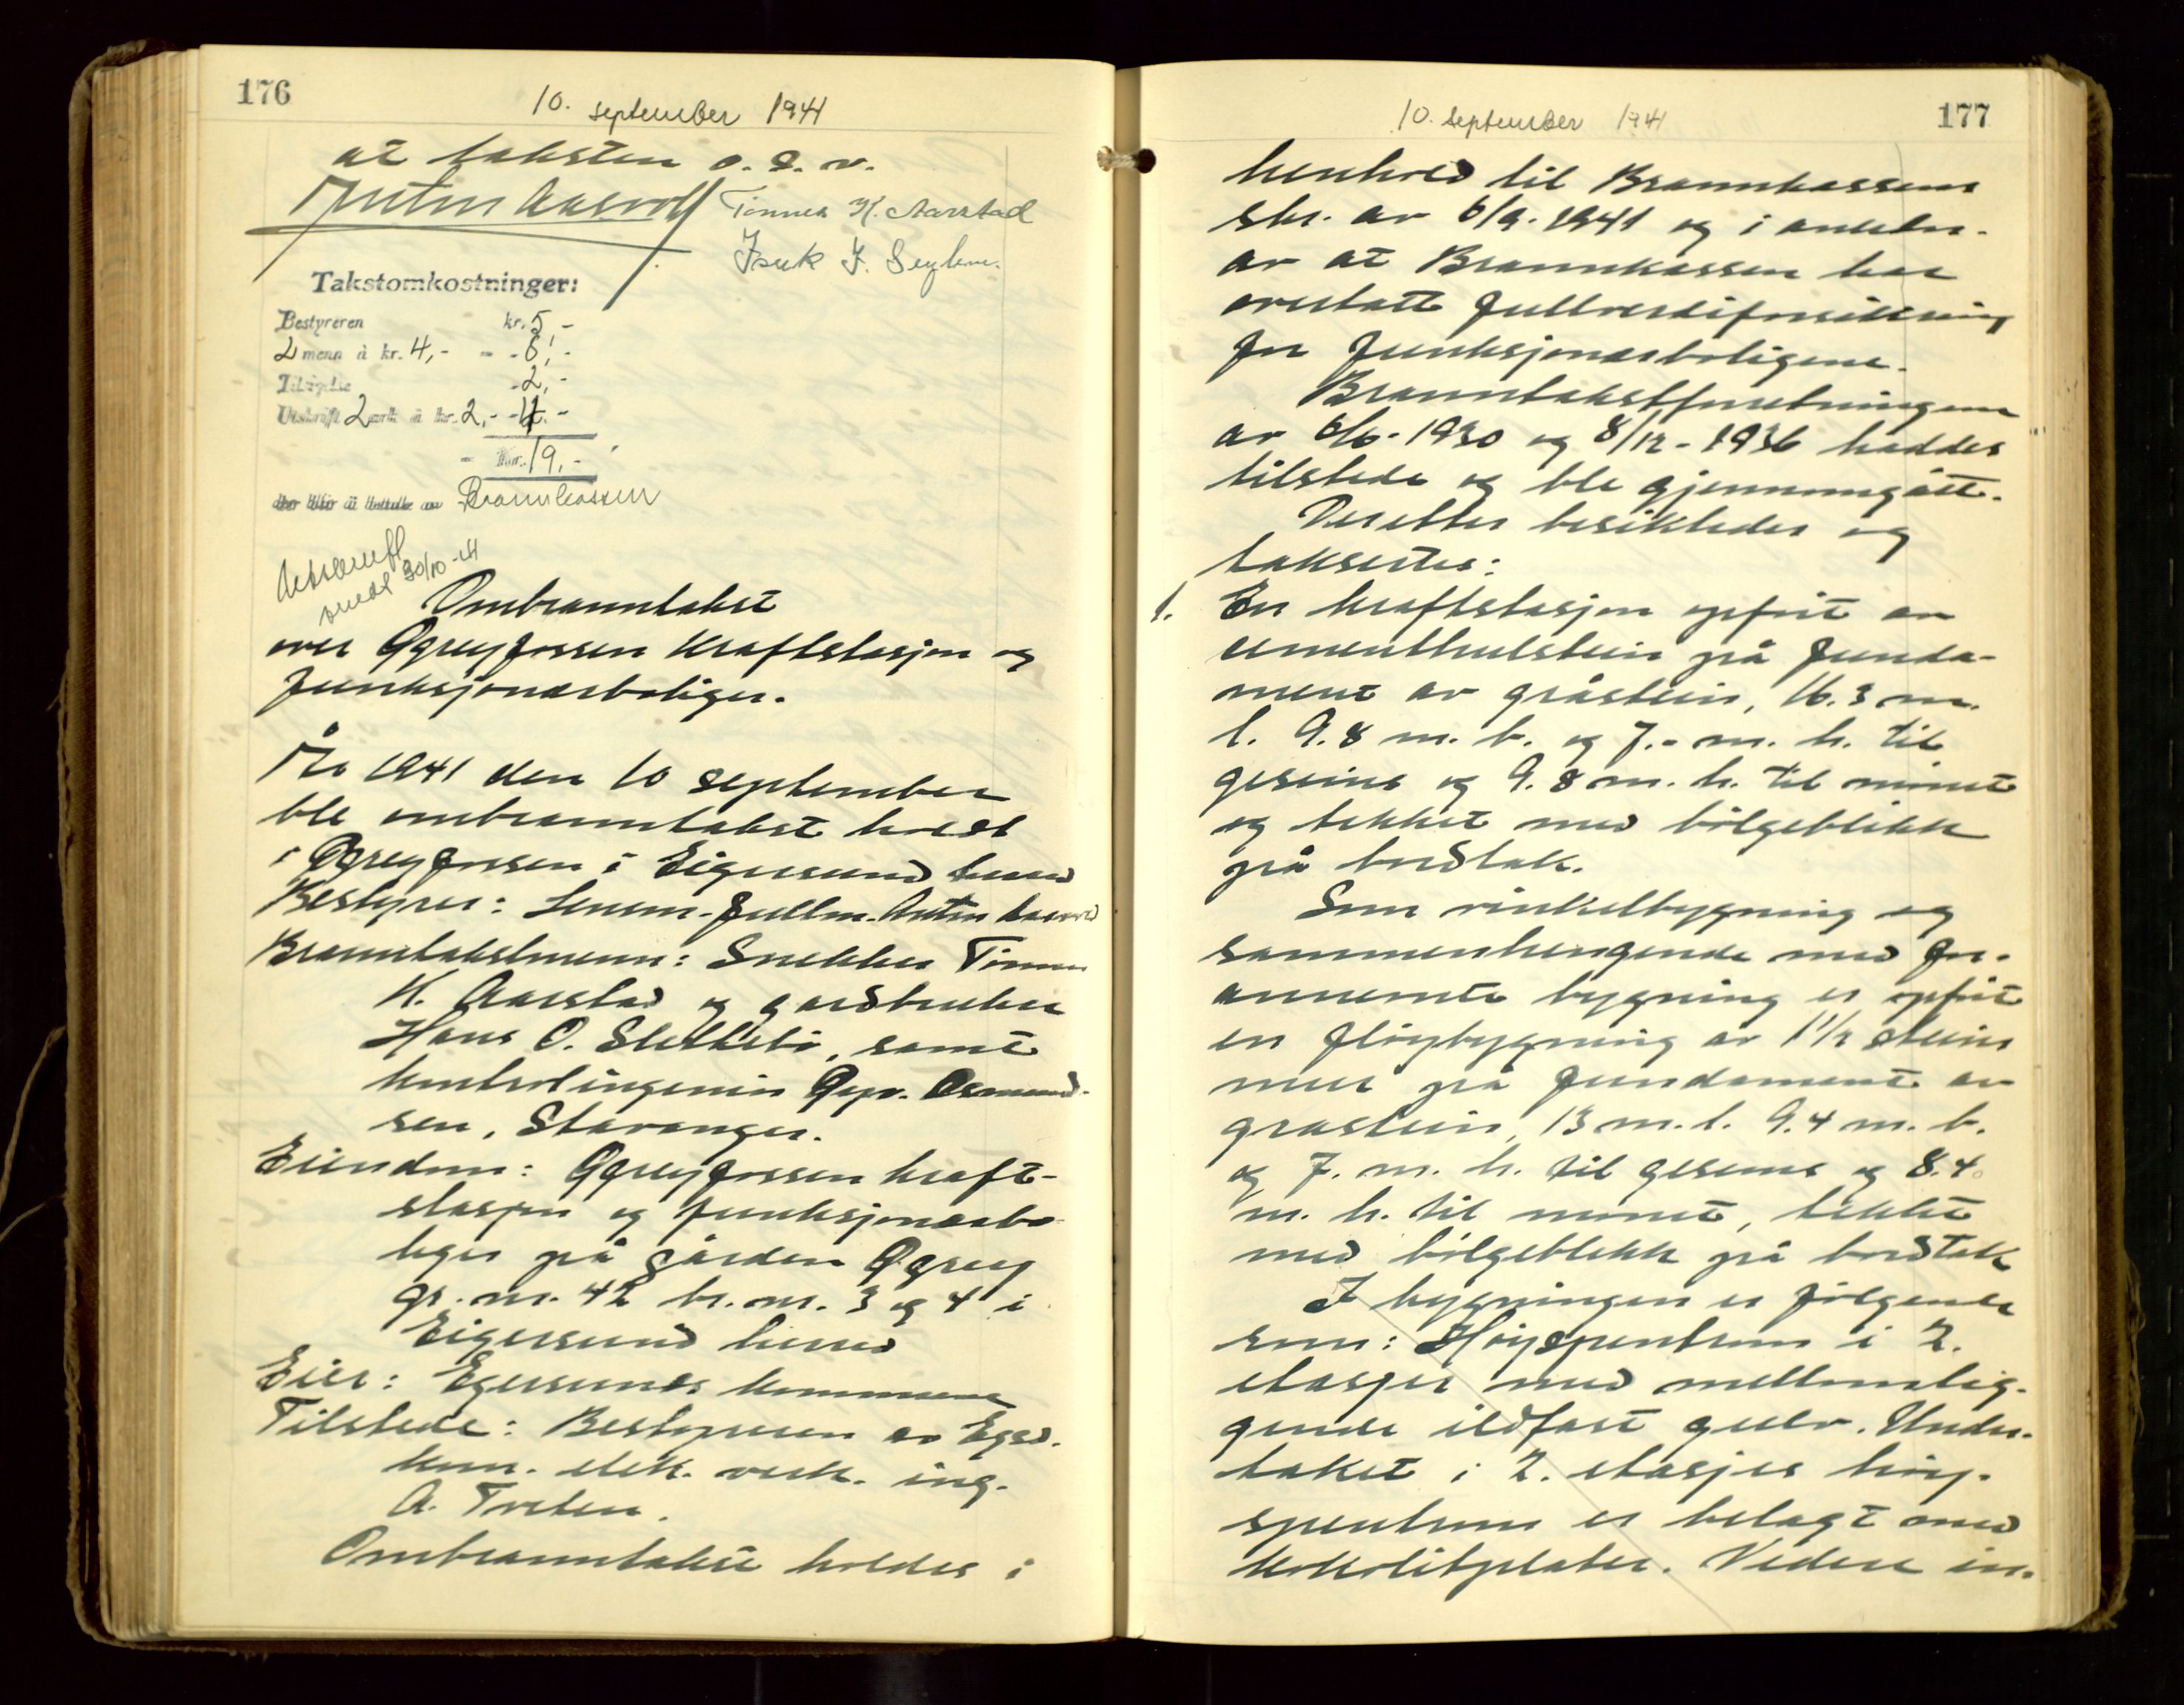 176
10. september 1941
at taksten o.s.v.
Anton Aasvold Tønnes K. Aarstad
Isak I.
Takstomkostninger:
Bestyreren kr. 5,-
2 menn à kr. 4,- - - 8,-
Tilsigelse - 2,-
Utskrift 2 ark à kr. 2,- - 4,-
- Kr. 19,-
Brannkassen
Utskrift
sendt 30/10-41
Ombranntakst
over Øgreyfossen kraftstasjon og
funksjonærboliger.
År 1941 den 10 september
ble ombranntakst holdt
i Øgreyfossen i Eigersund herred
Bestyrer: Lensm. fullm. Anton Aasvold
Branntakstmenn: Snekker Tønnes
K. Aarstad og gardbruker
Hans O. Slettebø, samt
kontrolingeniør Asmund-
sen, Stavanger.
Eiendom: Øgreyfossen kraft-
stasjon og funksjonærbo-
liger på gården Øgrey
gr.nr. 42 br.nr. 3 og 4 i
Eigersund herred
Eier: Egersunds kommune
Tilstede: Bestyreren av Egsd.
kom. elek. verk. ing.
A. Treten.
Ombranntakst holdes i
177
10. september 1941
henhold til Brannkassens
skr. av 6/9. 1941 og i anledn.
av at Brannkassen har
overtatt fullverdiforsikring
for funksjonærboligene.
Branntakstforretningene
av 6/6-1930 og 8/12-1936 haddes
tilstede og ble gjennomgått.
Deretter besiktedes og
taksertes:
1. En kraftstasjon opført av
cementhulstein på funda-
ment av gråstein, 16.3 m.
l. 9.8 m. b. og 7.- m. h. til
gesims og 9.8 m. h. til mønet
og tekket med bølgeblikk
på bordtak.
Som vinkelbygning og
sammenhengende med for-
annevnte bygning er opført
en fløybygning av 1 1/2 steins
mur på fundament av
grastein, 13 m. l. 9.4 m. b.
og 7. m. h. til gesims og 8.4
m. h. til mønet, tekket
med bølgeblekk på bordtak
I bygningen er følgende
rum: Høyspentrum i 2.
etasjer med mellomlig-
gende ildfast gulv. Under-
taket i 2. etasjes høy-
spentrum er belagt med
kokolitplater. Videre in-